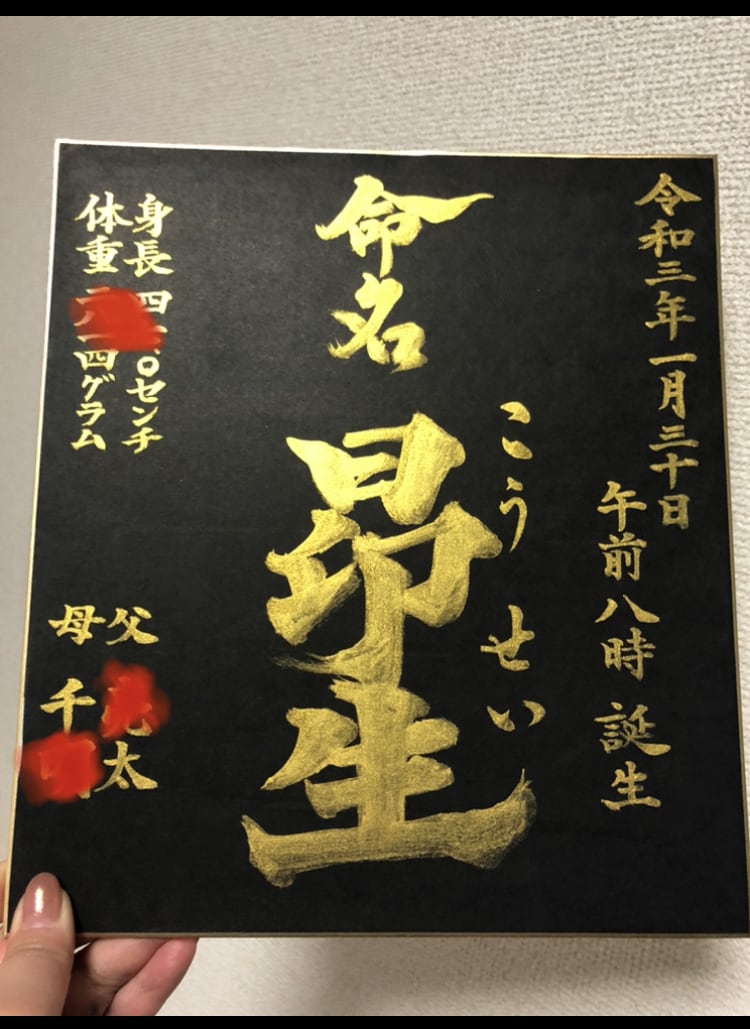 令和三年一月三十日
午前八時誕生
こうせい
命名
昴生
身長四 〇センチ
体重 四グラム
父 太
母千